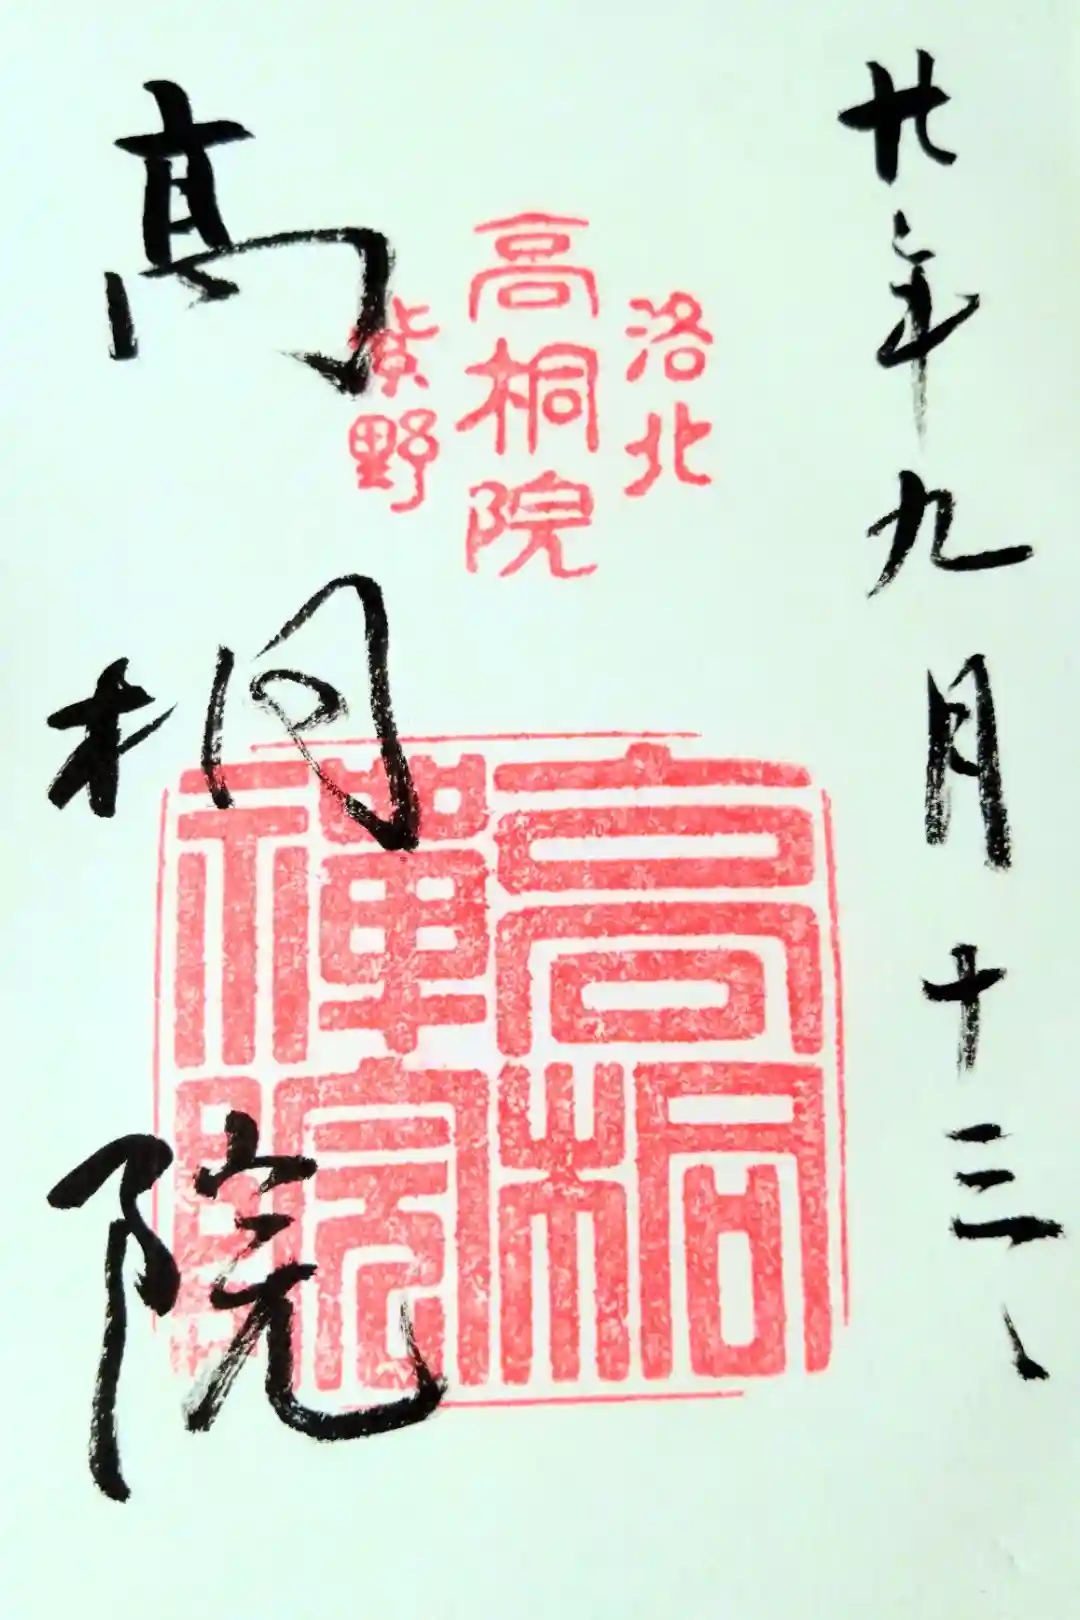 廿年九月十三日
洛北
高桐院
紫野
高桐
禅院
高桐院